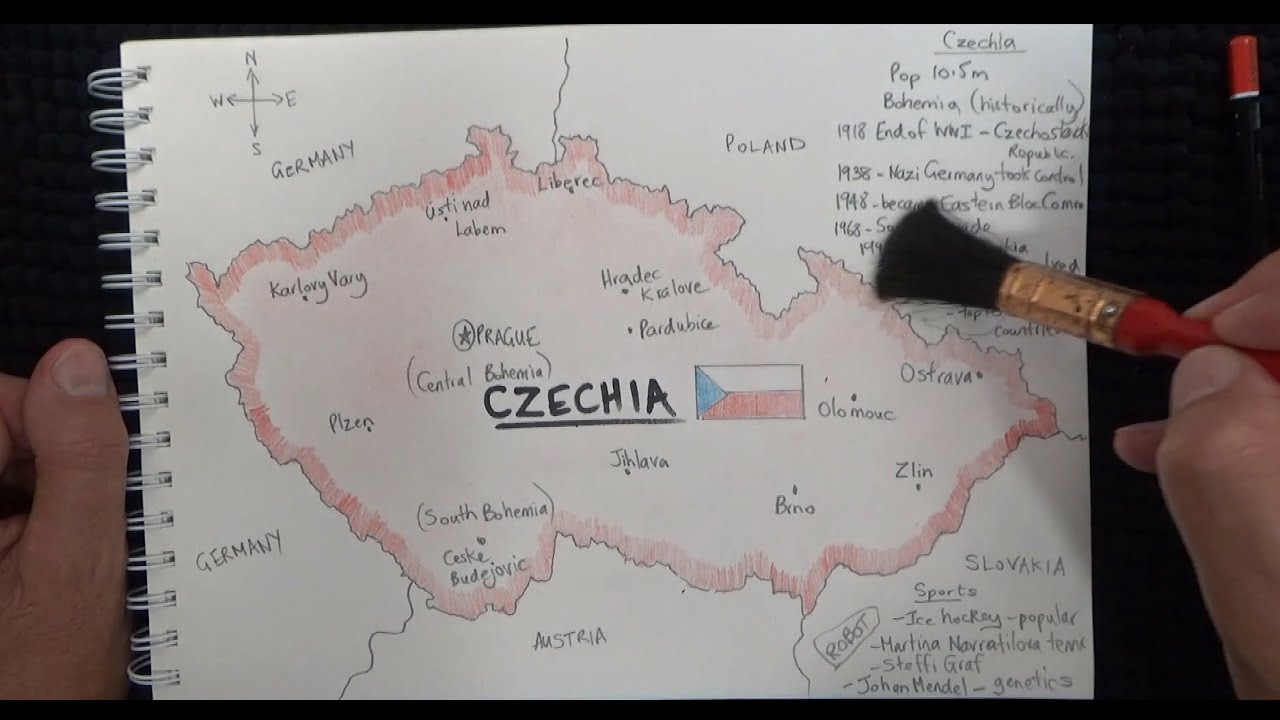 Czechia
Pop 10.5m
Bohemia (historically)
1918 End of WWI - Czechoslovak
Ropublic.
1938 - Nazi Germany took control
1948 - became Eastein Bloc Comm
1968 -
N
W E
S
GERMANY
POLAND
Liberec
Ústi nad
Labem
Karlovy Vary
Hradec
Kralove
PRAGUE
Pardubice
(Central Bohemia)
CZECHIA
Ostrava
Olomouc
Plzen
Jihlava
Zlin
Brno
(South Bohemia)
Ceske
Budejovic
GERMANY
AUSTRIA
SLOVAKIA
Sports
- Ice hockey - popular
ROBOT
- Martina Navratilova tenn
- Steffi Graf
- Johan Mendel - genetics